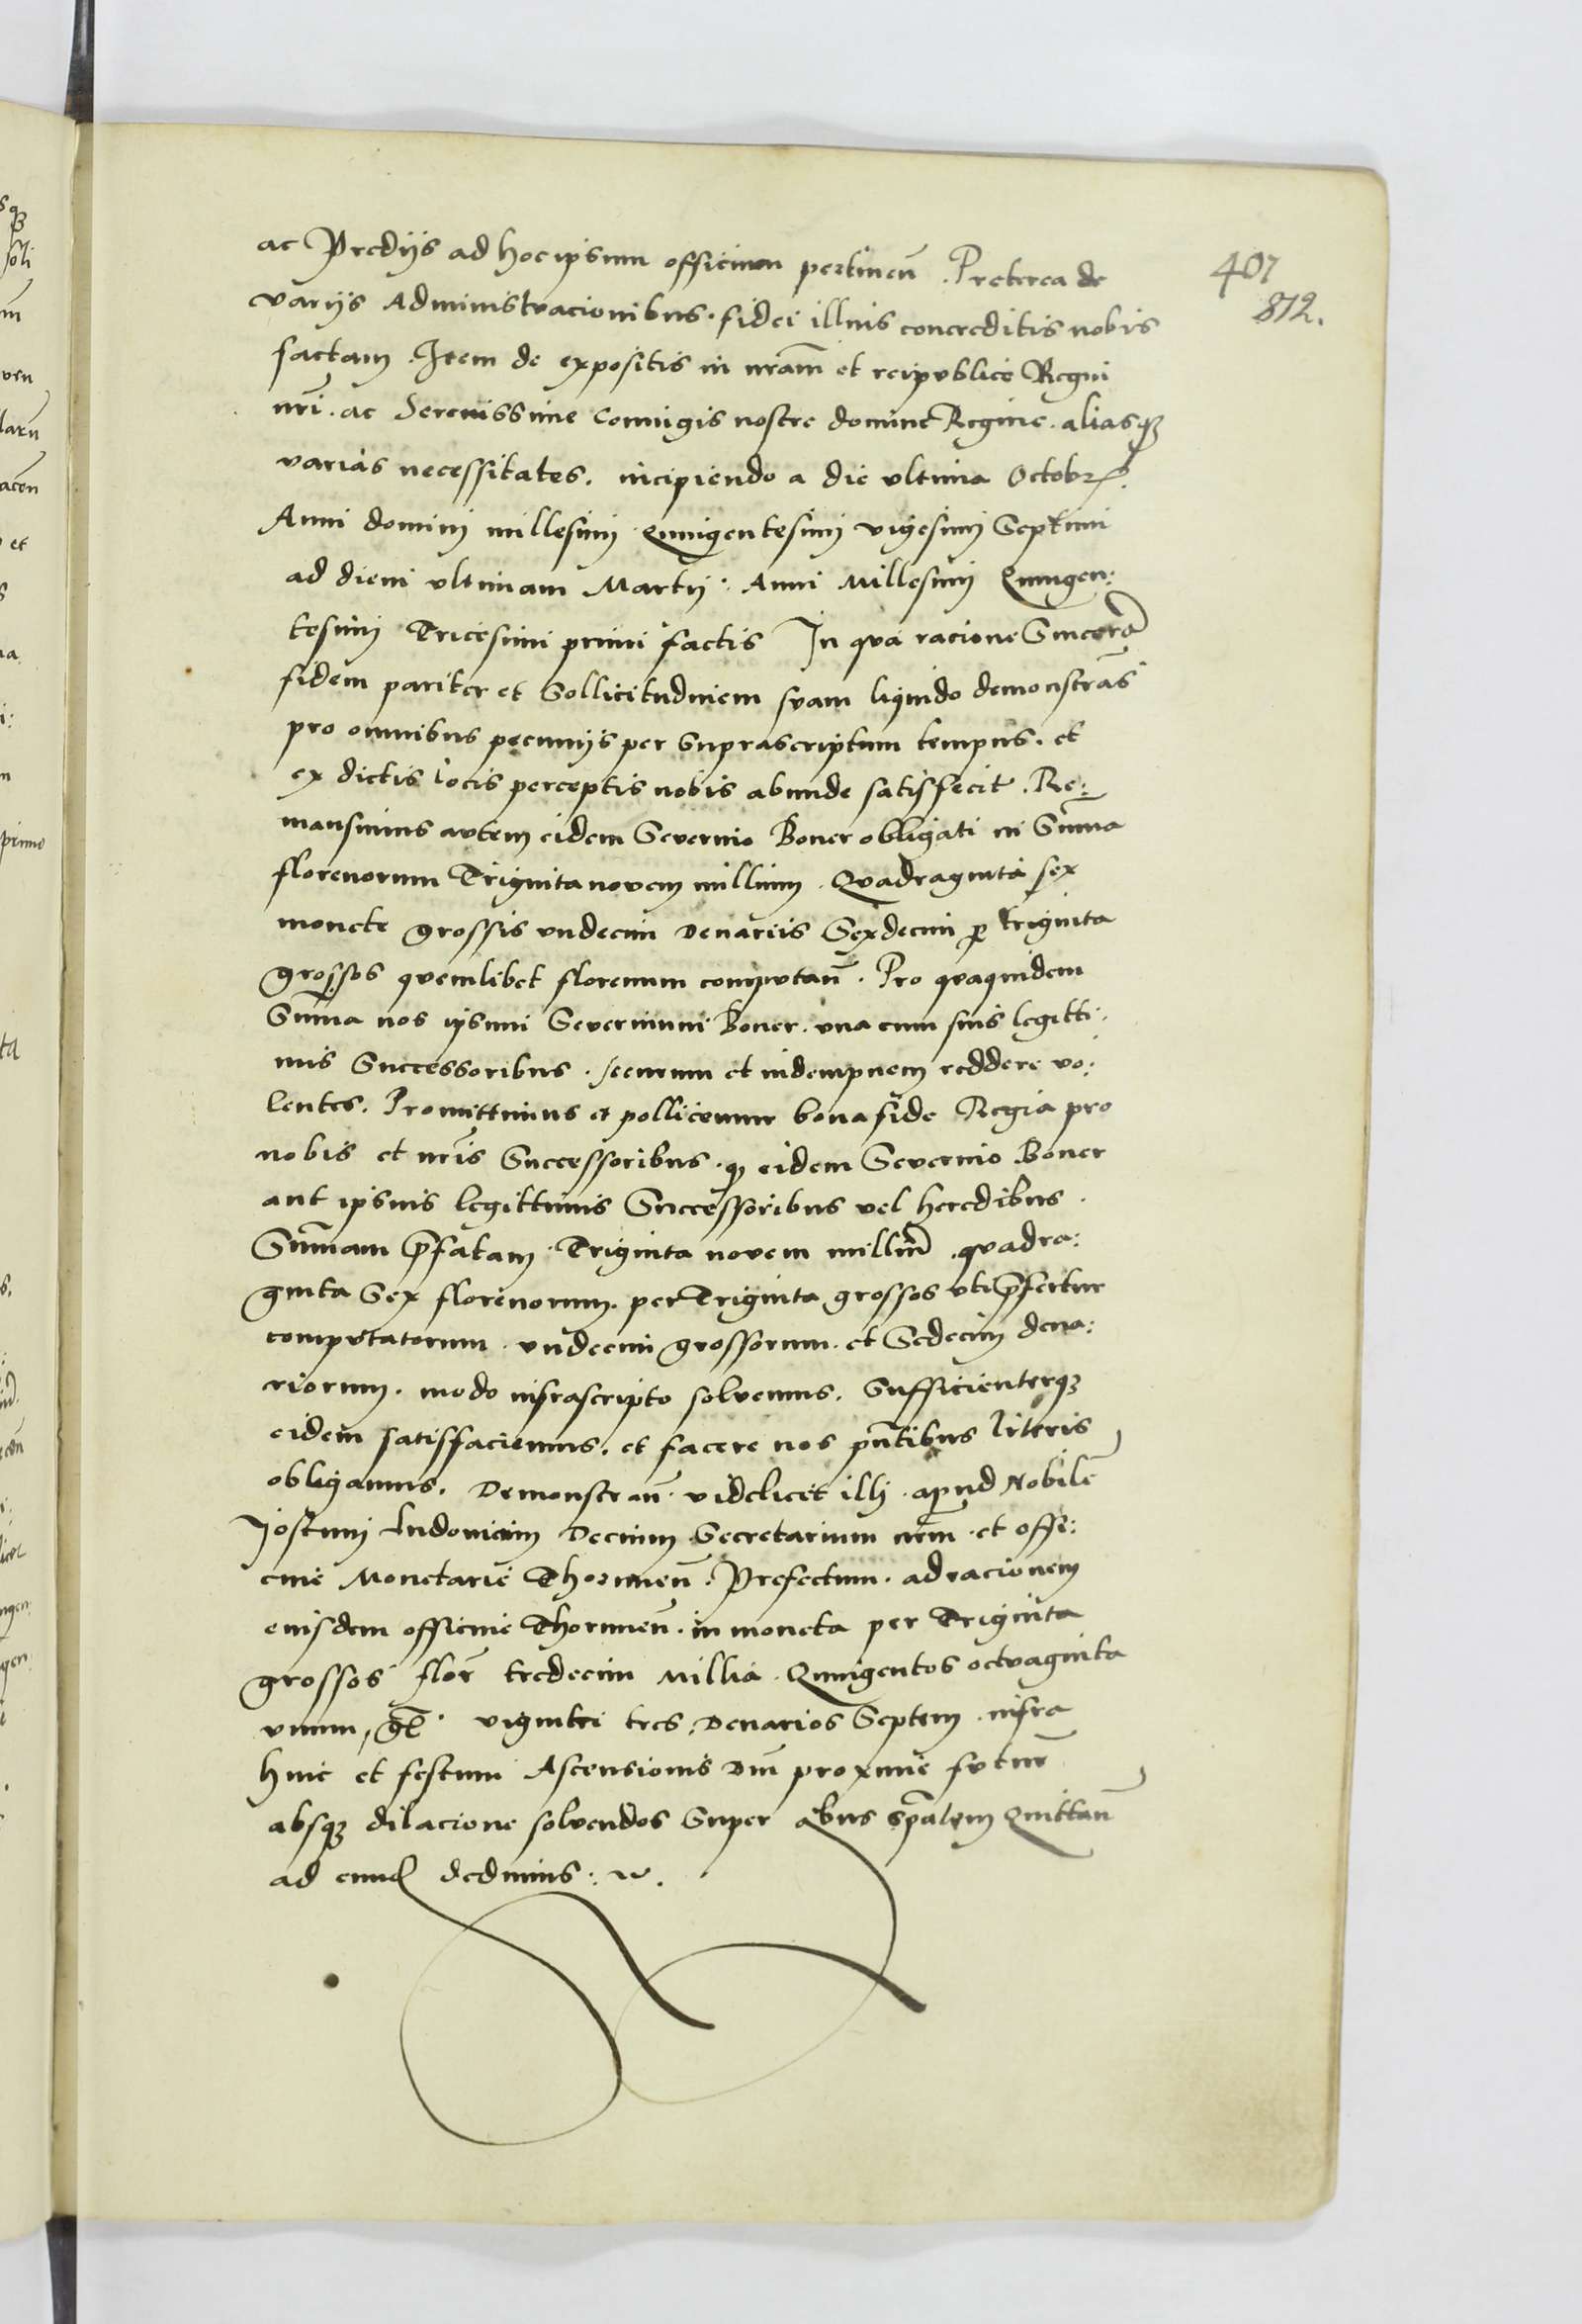 ac Predijs ad hoc ipsum officium pertineñ. Preterea de
407
varijs Administracionibus. fidei illius concreditis nobis
872.
factam. Item de expositis in nrãm et reipublice Regni
nrĩ. ac Serenissime Coniugis nostre domine Regine. aliasqꝫ
varias necessitates. incipiendo a die ultima Octobr.
Anni domini millesimi Quingentesimi vigesimi Septimi
ad diem ultimam Martij. Anni Millesimi Quingen:
tesimi Tricesimi primi factis In qua racione Sincerã
fidem pariter et Sollicitudinem suam liquido demonstrañs
pro omnibus pecunijs per Suprascriptum tempus. et
ex dictis locis perceptis nobis abunde satisfecit. Re:
mansimus autem eidem Severino Boner obligati in Sũma
florenorum Triginta novem millium. Quadraginta sex
monete grossis undecim Denariis Sexdecim ꝑ triginta
grossos quemlibet florenum computañ. Pro quaquidem
Sũma nos ipsum Severinum Boner. una cum suis legitti:
mis Successoribus. securum et indempnem reddere vo:
lentes. Promittimus et pollicemur bona fide Regia pro
nobis et nrĩs Successoribus. qꝫ eidem Severino Boner
aut ipsius legittimis Successoribus vel heredibus.
Sũmam p̃fatam. Triginta novem milliũ. quadra:
ginta Sex florenorum. per Triginta grossos uti p̃fertur
computatorum. undecim grossorum. et Sedecim dena:
riorum. modo infrascripto solvemus. Sufficienterqꝫ
eidem satisfaciemus. et facere nos pñtibus literis
obligamus. Demonstrañ. videlicet illi. apud Nobilẽ
Jostum Ludovicum Decium Secretarium nrm̃. et offi:
cine Monetarie Thorunieñ. Prefectum. ad racionem
eiusdem officine Thorunieñ. in moneta per Triginta
grossos flor̃ tredecim Millia. Quingentos octuaginta
unum, gr̃. viginti tres. Denarios Septem. infra
hinc et festum Ascensionis Dñi proxime futur̃
absqꝫ dilacione solvendos Super qbus sp̃alem Quittañ
ad eund dedimus: